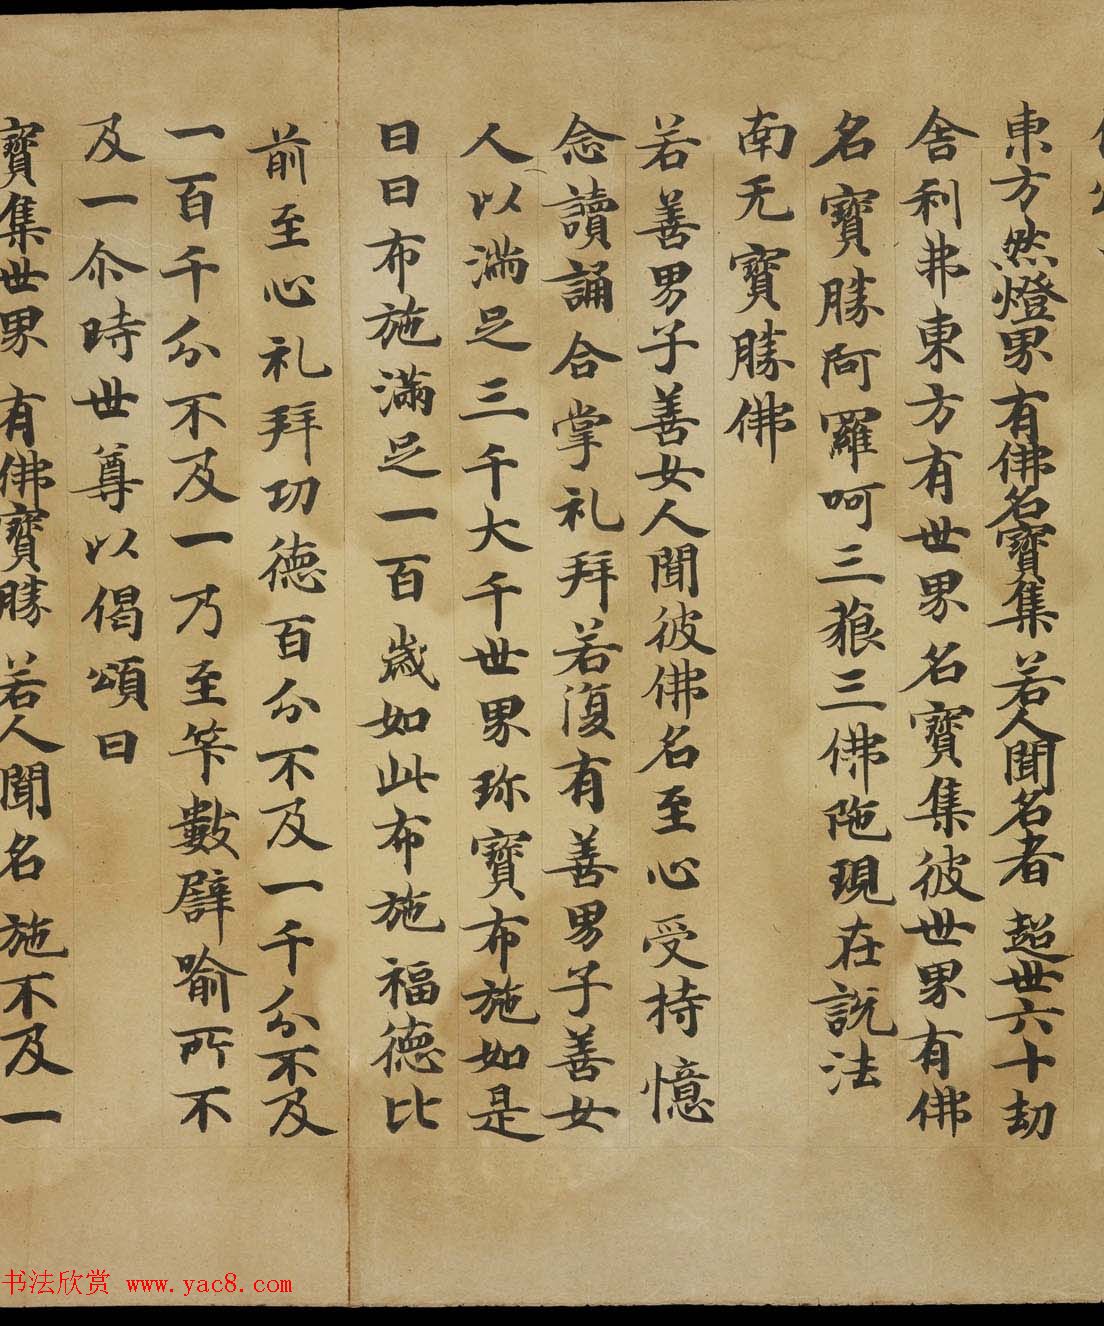 東方然燈界 有佛名寶集 若人聞名者 超世六十劫
舍利弗東方有世界名寶集彼世界有佛
名寶勝阿羅呵三藐三佛陁現在説法
南无寶勝佛
若善男子善女人聞彼佛名至心受持憶
念讀誦合掌礼拜若復有善男子善女
人以滿足三千大千世界珎寶布施如是
日日布施滿足一百歲如此布施福德比
前至心礼拜功德百分不及一千分不及
一百千分不及一乃至筭數譬喻所不
及一尒時世尊以偈頌曰
寶集世界 有佛寶勝 若人聞名 施不及一
书法欣赏 www.yac8.com